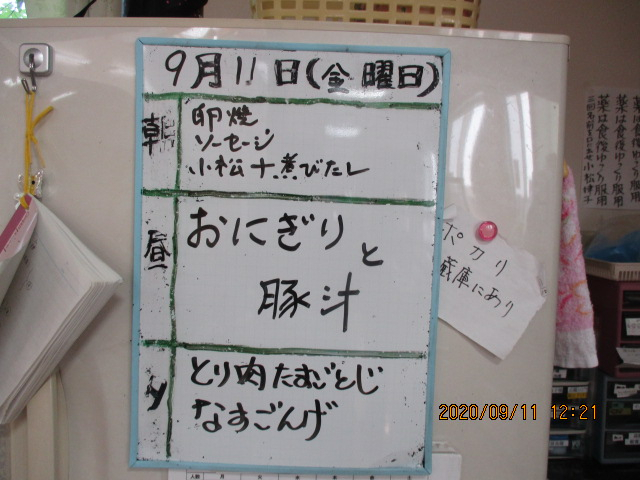 9月11日(金曜日)
朝
卵焼
ソーセージ
小松ナ煮びたし
昼
おにぎり
と
豚汁
夕
とり肉たまごとじ
なすごんげ
ポカリ
蔵庫にあり
薬は食後ゆっくり服用
薬は食後ゆっくり服用
2020/09/11 12:21